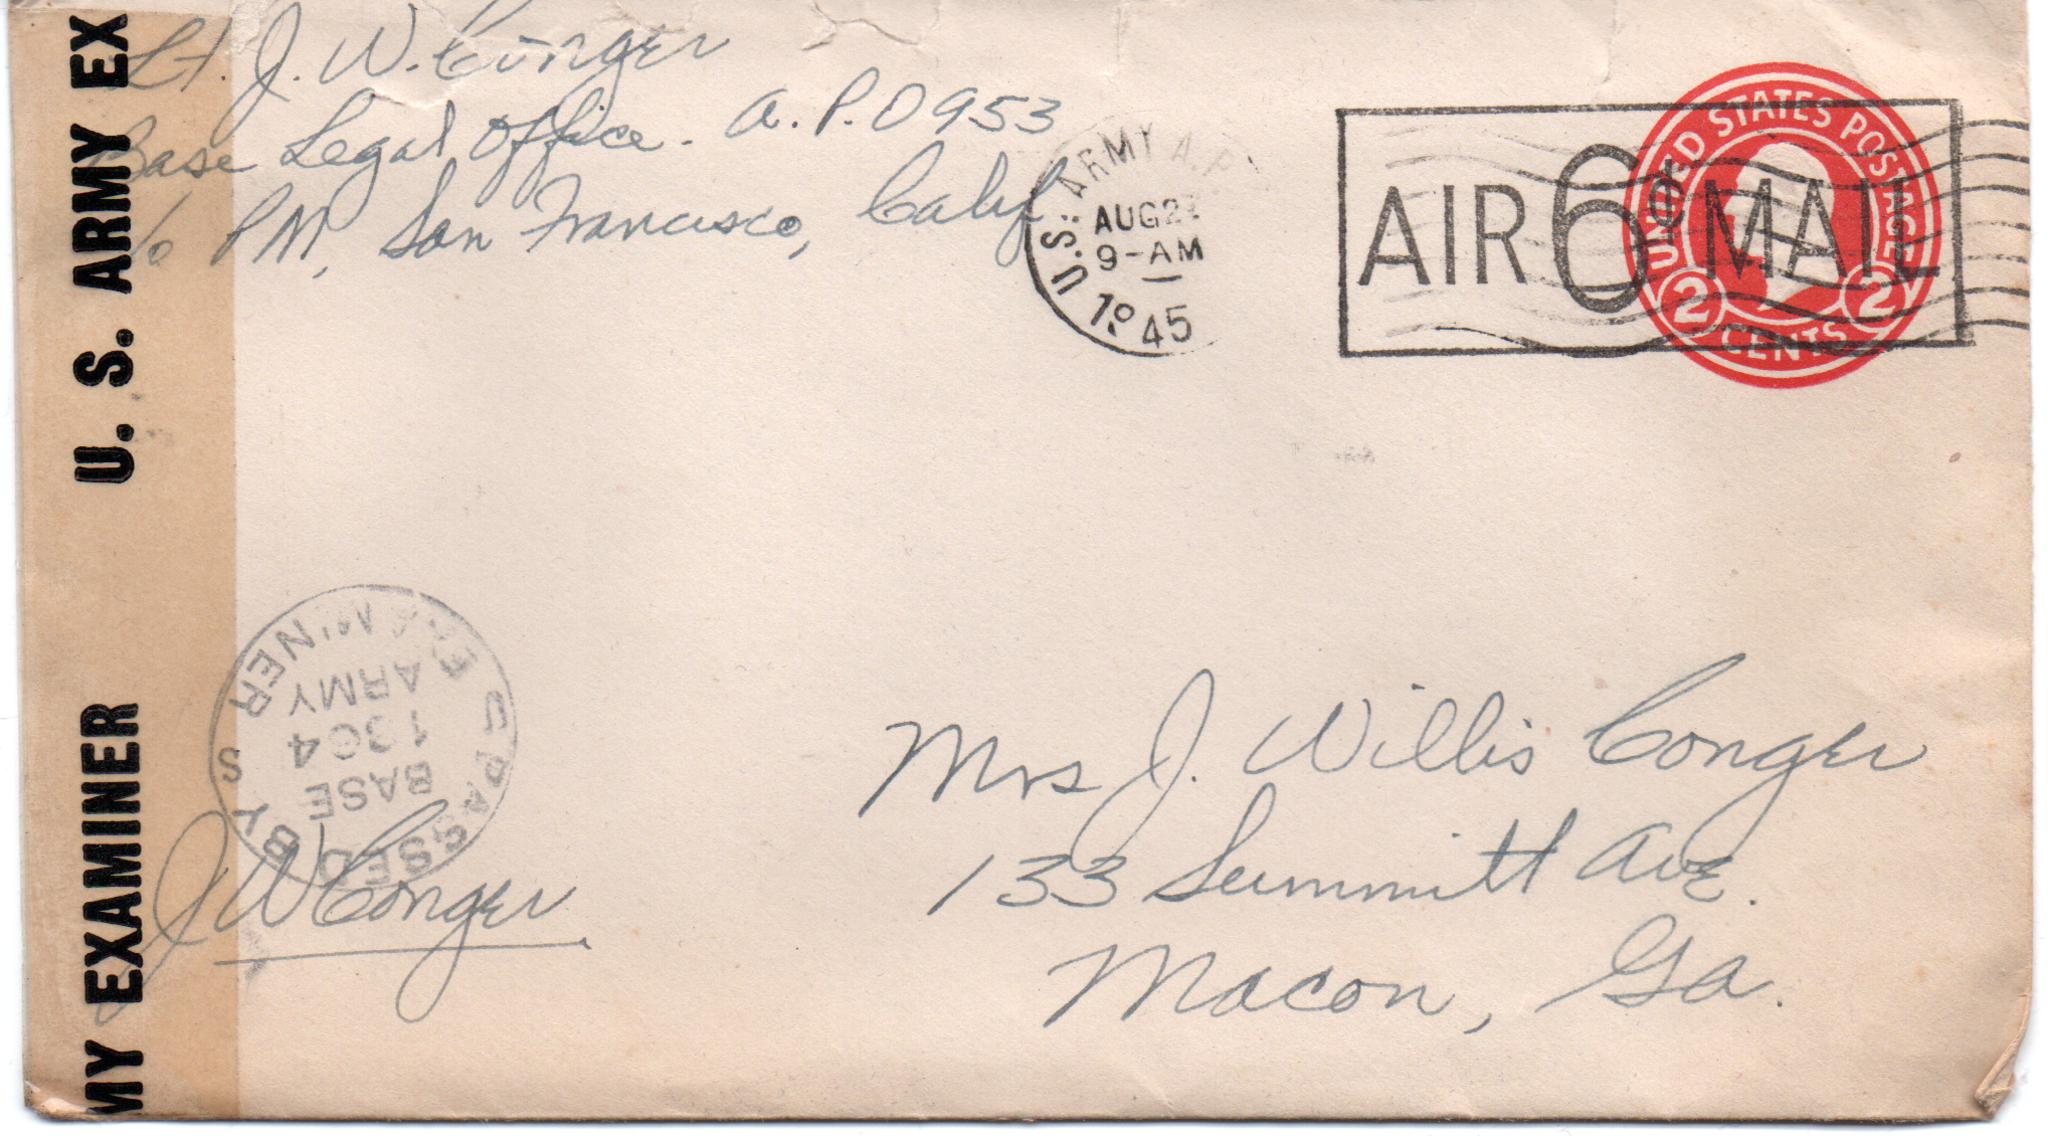 Lt. J. W. Conger
Base Legal Office. A.P.O 953
c/o P.M, San Francisco, Calif
U. S. ARMY EX
MY EXAMINER
U.S. ARMY A.P.
AUG
9-AM
1945
AIR 6¢ MAIL
UNITED STATES POSTAGE
2 CENTS 2
PASSED BY
BASE
1304
ARMY
EXAMINER
U S
J W Conger
Mrs J. Willis Conger
133 Summitt Ave.
Macon, Ga.